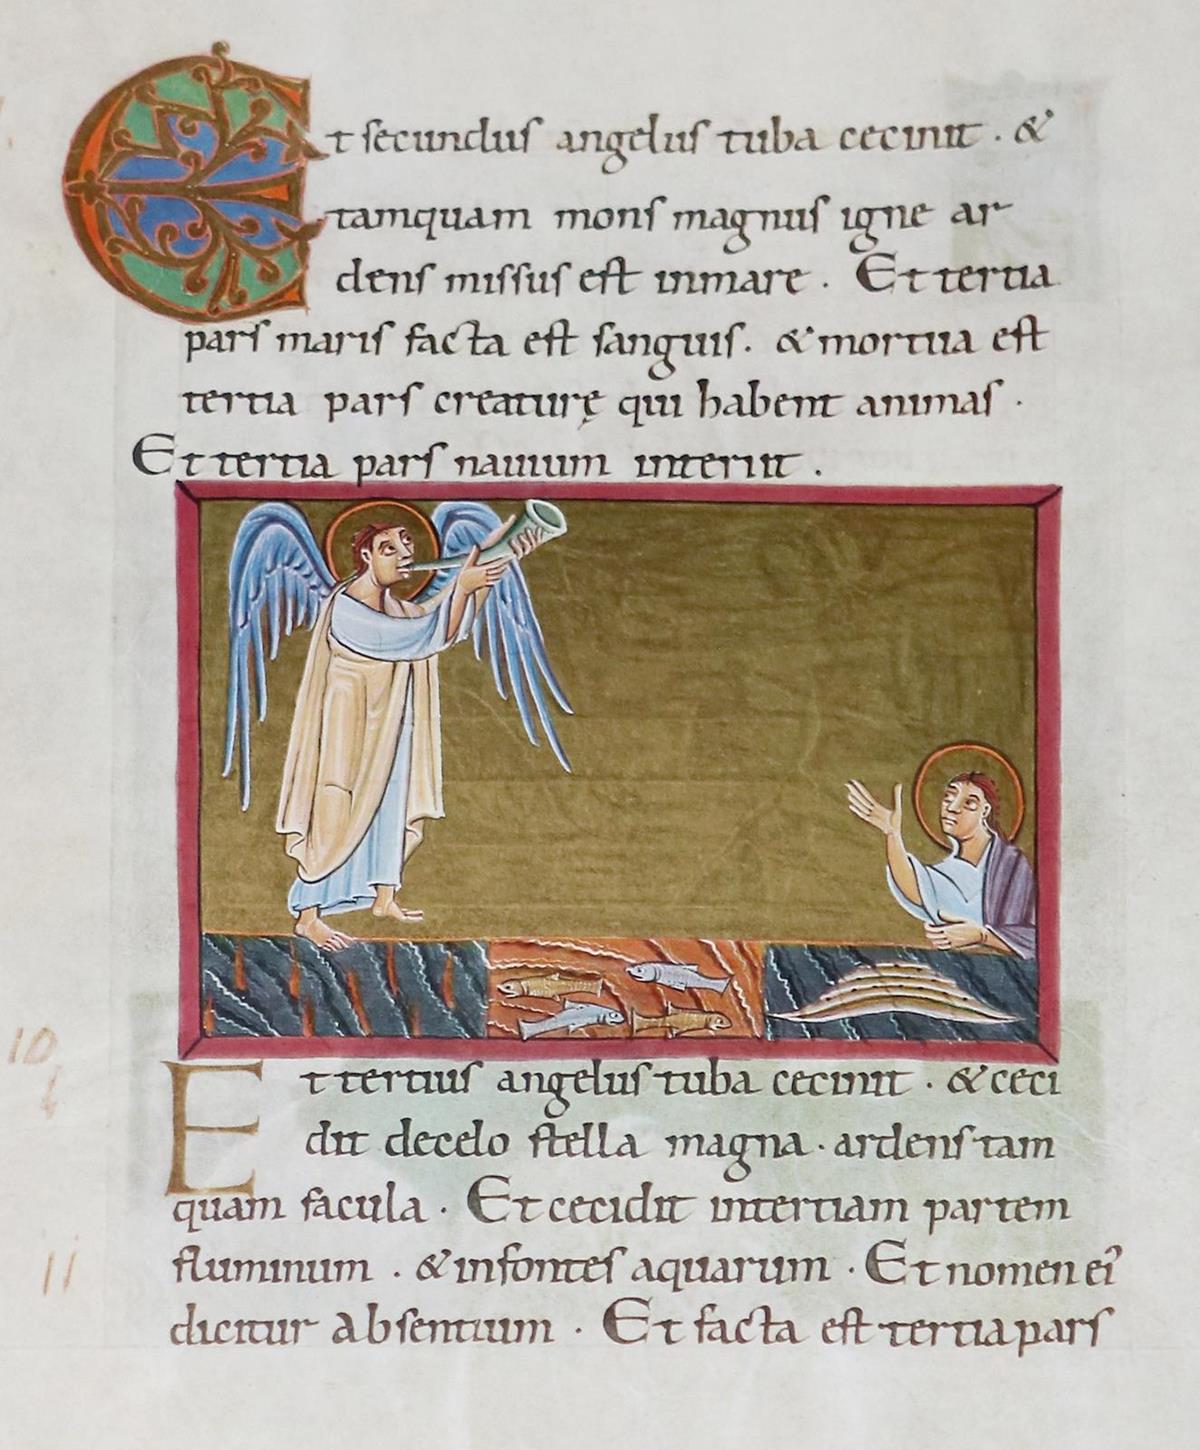 Et secundus angelus tuba cecinit · &
tamquam mons magnus igne ar-
dens missus est inmare · Et tertia
pars maris facta est sanguis · & mortua est
tertia pars creaturę qui habent animas ·
Et tertia pars nauium interiit ·
10
Et tertius angelus tuba cecinit · & ceci
dit decelo stella magna · ardens tam
quam facula · Et cecidit intertiam partem
11
fluminum · & infontes aquarum · Et nomen ei'
dicitur absentium · Et facta est tertia pars